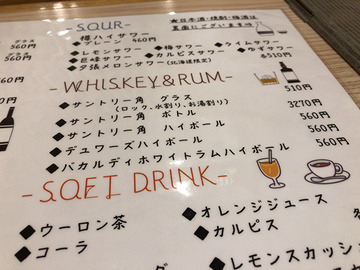 -SOUR-
★日本酒・焼酎・梅酒は
裏面にございます
グラス
560円
樽ハイサワー
プレーン 460円
560円
◆レモンサワー ◆梅サワー ◆タイムサワー
◆巨峰サワー ◆カルピスサワー ◆ゆずサワー
◆夕張メロンサワー(北海道限定) 各510円
-WHISKEY&RUM-
◆サントリー角 グラス 510円
(ロック、水割り、お湯割り)
◆サントリー角 ボトル 3270円
◆サントリー角 ハイボール 560円
◆デュワーズハイボール 560円
◆バカルディホワイトラムハイボール 560円
-SOFT DRINK-
◆ウーロン茶
◆オレンジジュース
◆コーラ
◆カルピス
◆レモンスカッシ